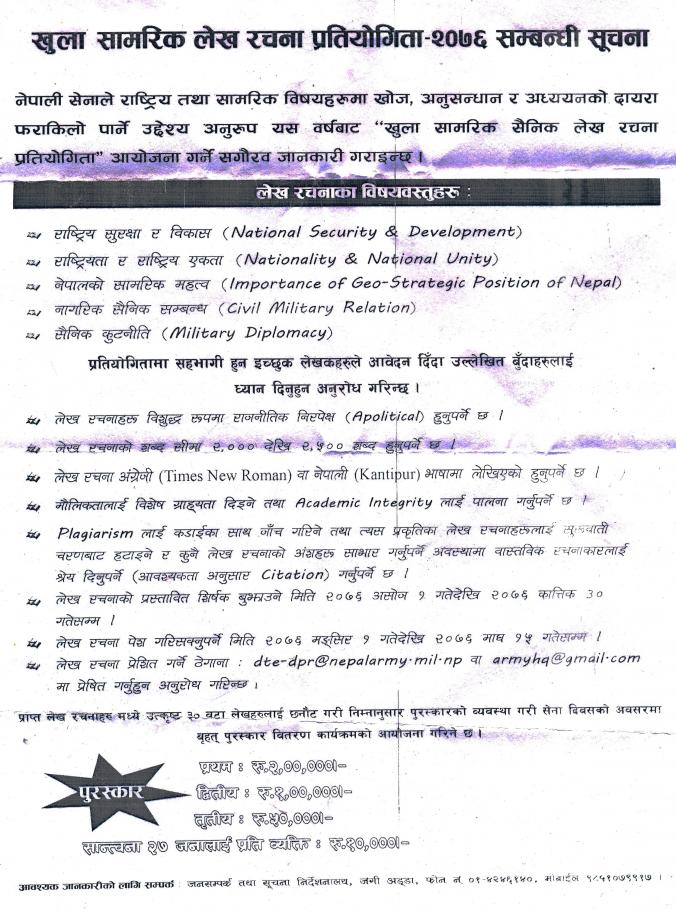 खुला सामरिक लेख रचना प्रतियोगिता-२०७६ सम्बन्धी सूचना
नेपाली सेनाले राष्ट्रिय तथा सामरिक विषयहरूमा खोज, अनुसन्धान र अध्ययनको दायरा
फराकिलो पार्ने उद्देश्य अनुरूप यस वर्षबाट “खुला सामरिक सैनिक लेख रचना
प्रतियोगिता” आयोजना गर्ने सगौरव जानकारी गराइन्छ ।
लेख रचनाका विषयवस्तुहरू :
राष्ट्रिय सुरक्षा र विकास (National Security & Development)
राष्ट्रियता र राष्ट्रिय एकता (Nationality & National Unity)
नेपालको सामरिक महत्व (Importance of Geo-Strategic Position of Nepal)
नागरिक सैनिक सम्बन्ध (Civil Military Relation)
सैनिक कुटनीति (Military Diplomacy)
प्रतियोगितामा सहभागी हुन इच्छुक लेखकहरुले आवेदन दिँदा उल्लेखित बुँदाहरुलाई
ध्यान दिनुहुन अनुरोध गरिन्छ ।
लेख रचनाहरु विशुद्ध रुपमा राजनीतिक निरपेक्ष (Apolitical) हुनुपर्ने छ ।
लेख रचनाको शब्द सीमा २,००० देखि २,५०० शब्द हुनुपर्ने छ ।
लेख रचना अंग्रेजी (Times New Roman) वा नेपाली (Kantipur) भाषामा लेखिएको हुनुपर्ने छ ।
मौलिकतालाई विशेष ग्राह्यता दिइने तथा Academic Integrity लाई पालना गर्नुपर्ने छ ।
Plagiarism लाई कडाईका साथ जाँच गरिने तथा त्यस प्रकृतिका लेख रचनाहरुलाई सुरुवाती
चरणबाट हटाइने र कुनै लेख रचनाको अंशहरु साभार गर्नुपर्ने अवस्थामा वास्तविक रचनाकारलाई
श्रेय दिनुपर्ने (आवश्यकता अनुसार Citation) गर्नुपर्ने छ ।
लेख रचनाको प्रस्तावित शिर्षक बुझाउने मिति २०७६ असोज १ गतेदेखि २०७६ कात्तिक ३०
गतेसम्म ।
लेख रचना पेश गरिसक्नुपर्ने मिति २०७६ मङ्सिर १ गतेदेखि २०७६ माघ १५ गतेसम्म ।
लेख रचना प्रेशित गर्ने ठेगाना : dte-dpr@nepalarmy.mil.np वा armyhq@gmail.com
मा प्रेषित गर्नुहुन अनुरोध गरिन्छ ।
प्राप्त लेख रचनाहरु मध्ये उत्कृष्ट ३० वटा लेखहरुलाई छनौट गरी निम्नानुसार पुरस्कारको व्यवस्था गरी सेना दिवसको अवसरमा
बृहत् पुरस्कार वितरण कार्यक्रमको आयोजना गरिने छ ।
पुरस्कार
प्रथम : रु.२,००,०००।-
द्वितीय : रु.१,००,०००।-
तृतीय : रु.५०,०००।-
सान्त्वना २७ जनालाई प्रति व्यक्ति : रु.१०,०००।-
आवश्यक जानकारीको लागि सम्पर्क : जनसम्पर्क तथा सूचना निर्देशनालय, जंगी अड्डा, फोन नं ०१-४२४६१४०, मोबाईल ९८५१०७९९१७ ।